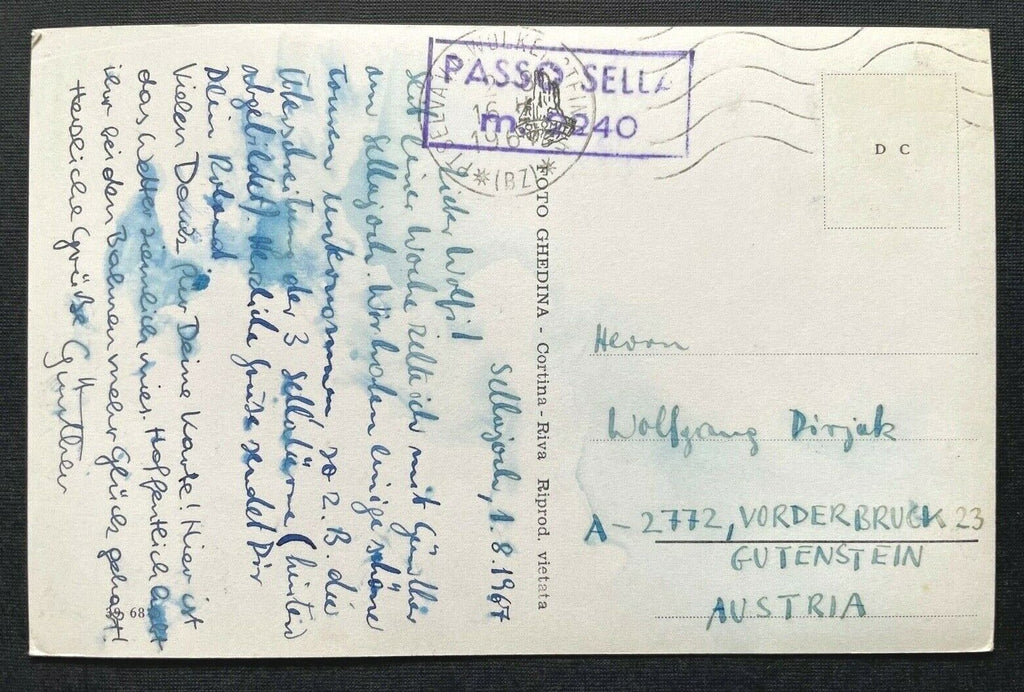 Selljoch, 1.8.1967
Lieber Wolfi!
Seit einer Woche zelte ich mit Günther
am Sellajoch. Wir haben einige schöne
Touren unternommen, so z. B. die
Überschreitung der 3 Sellatürme (hinten
abgebildet). Herzliche Grüße sendet Dir
Dein Roland.
Vielen Dank für Deine Karte! Hier ist
das Wetter ziemlich mies. Hoffentlich
ihr bei den mehr Glück gehabt!
Herzliche Grüße Günther
39 68
FOTO GHEDINA - Cortina - Riva Riprod. vietata
PASSO SELLA
m. 2240
WOLKENSTEIN
SELVA
16
196
(BZ)
D C
Herrn
Wolfgang Dirjak
A-2772, VORDERBRUCK 23
GUTENSTEIN
AUSTRIA